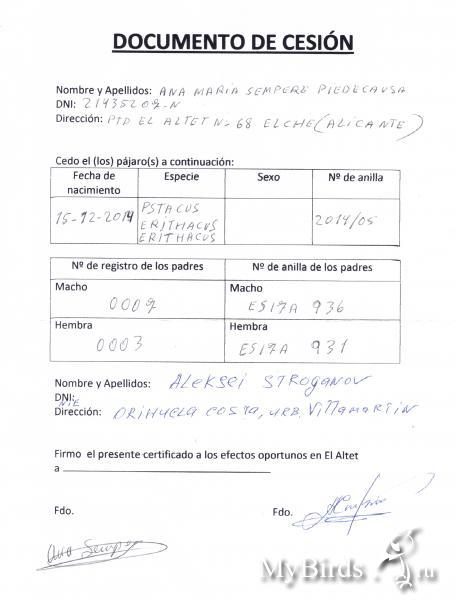 DOCUMENTO DE CESIÓN
Nombre y Apellidos: ANA MARIA SEMPERE PIEDECAUSA
DNI: 21435207-N
Dirección: PTD EL ALTET Nº 68 ELCHE (ALICANTE)
Cedo el (los) pájaro(s) a continuación:
Fecha de nacimiento Especie Sexo Nº de anilla
15-12-2014 PSTACUS ERITHACUS ERITHACUS 2014/05
Nº de registro de los padres Nº de anilla de los padres
Macho Macho
0007 ES17A 936
Hembra Hembra
0003 ES17A 931
Nombre y Apellidos: ALEKSEI STROGANOV
DNI:
NIE
Dirección: ORIHUELA COSTA, URB. VILLAMARTIN
Firmo el presente certificado a los efectos oportunos en El Altet
a
Fdo. Fdo.
Ana Semper
MyBirds.ru